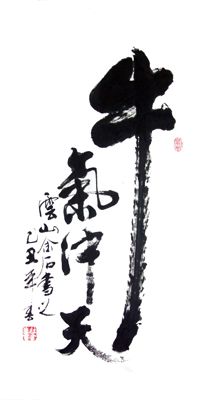 牛
氣沖天
雲山余石書之
己丑年春